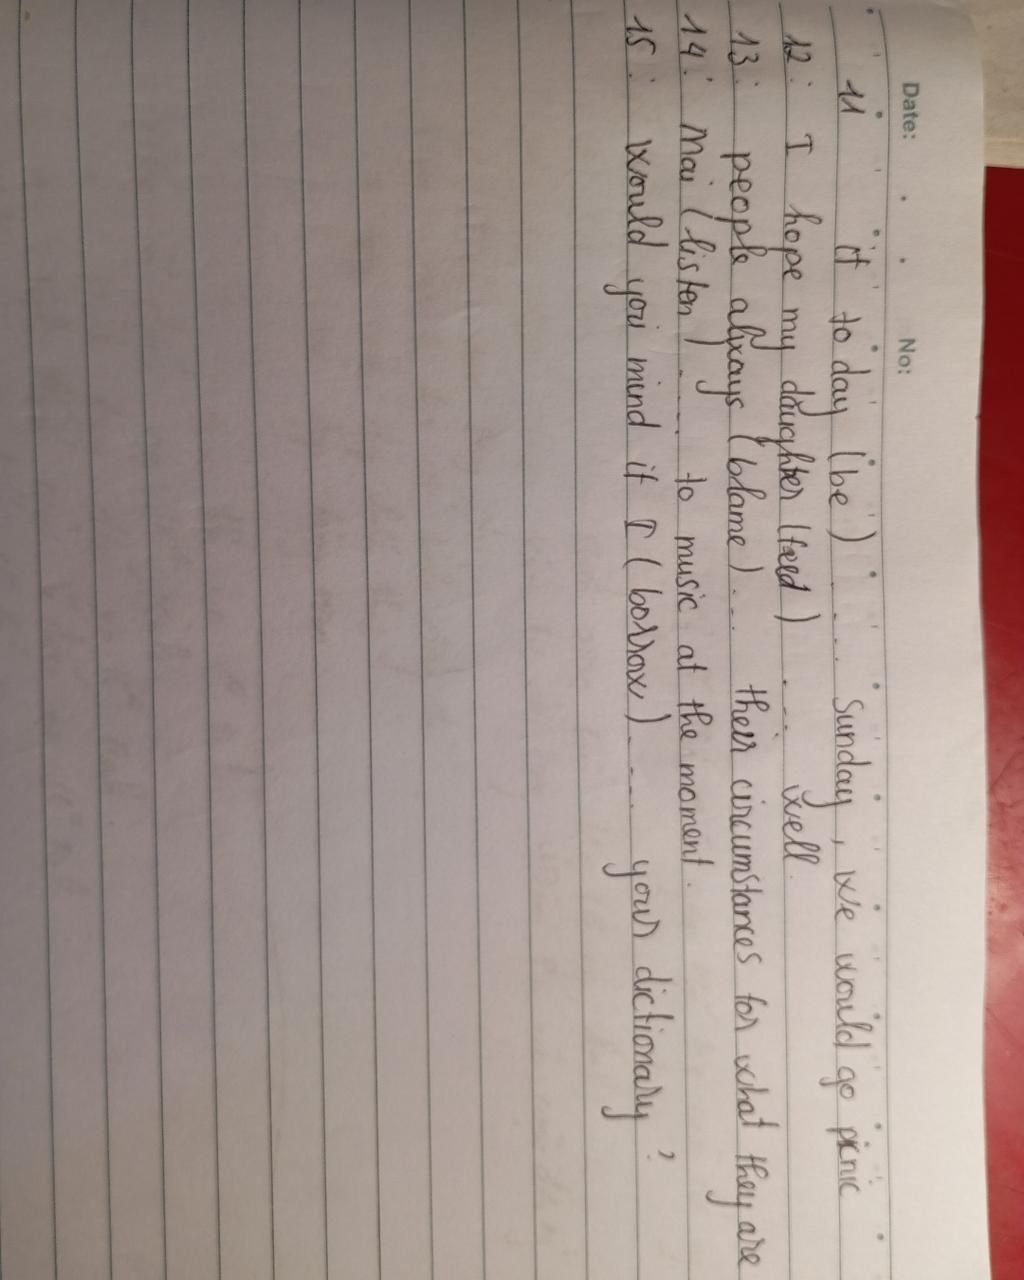 Date: No:
11 if to day (be) .... Sunday, we would go picnic
12: I hope my daughter (feel) .... well.
13: people always (blame) ... their circumstances for what they are
14: Mai (listen) .... to music at the moment.
15: would you mind if I (borrow) .... your dictionary?